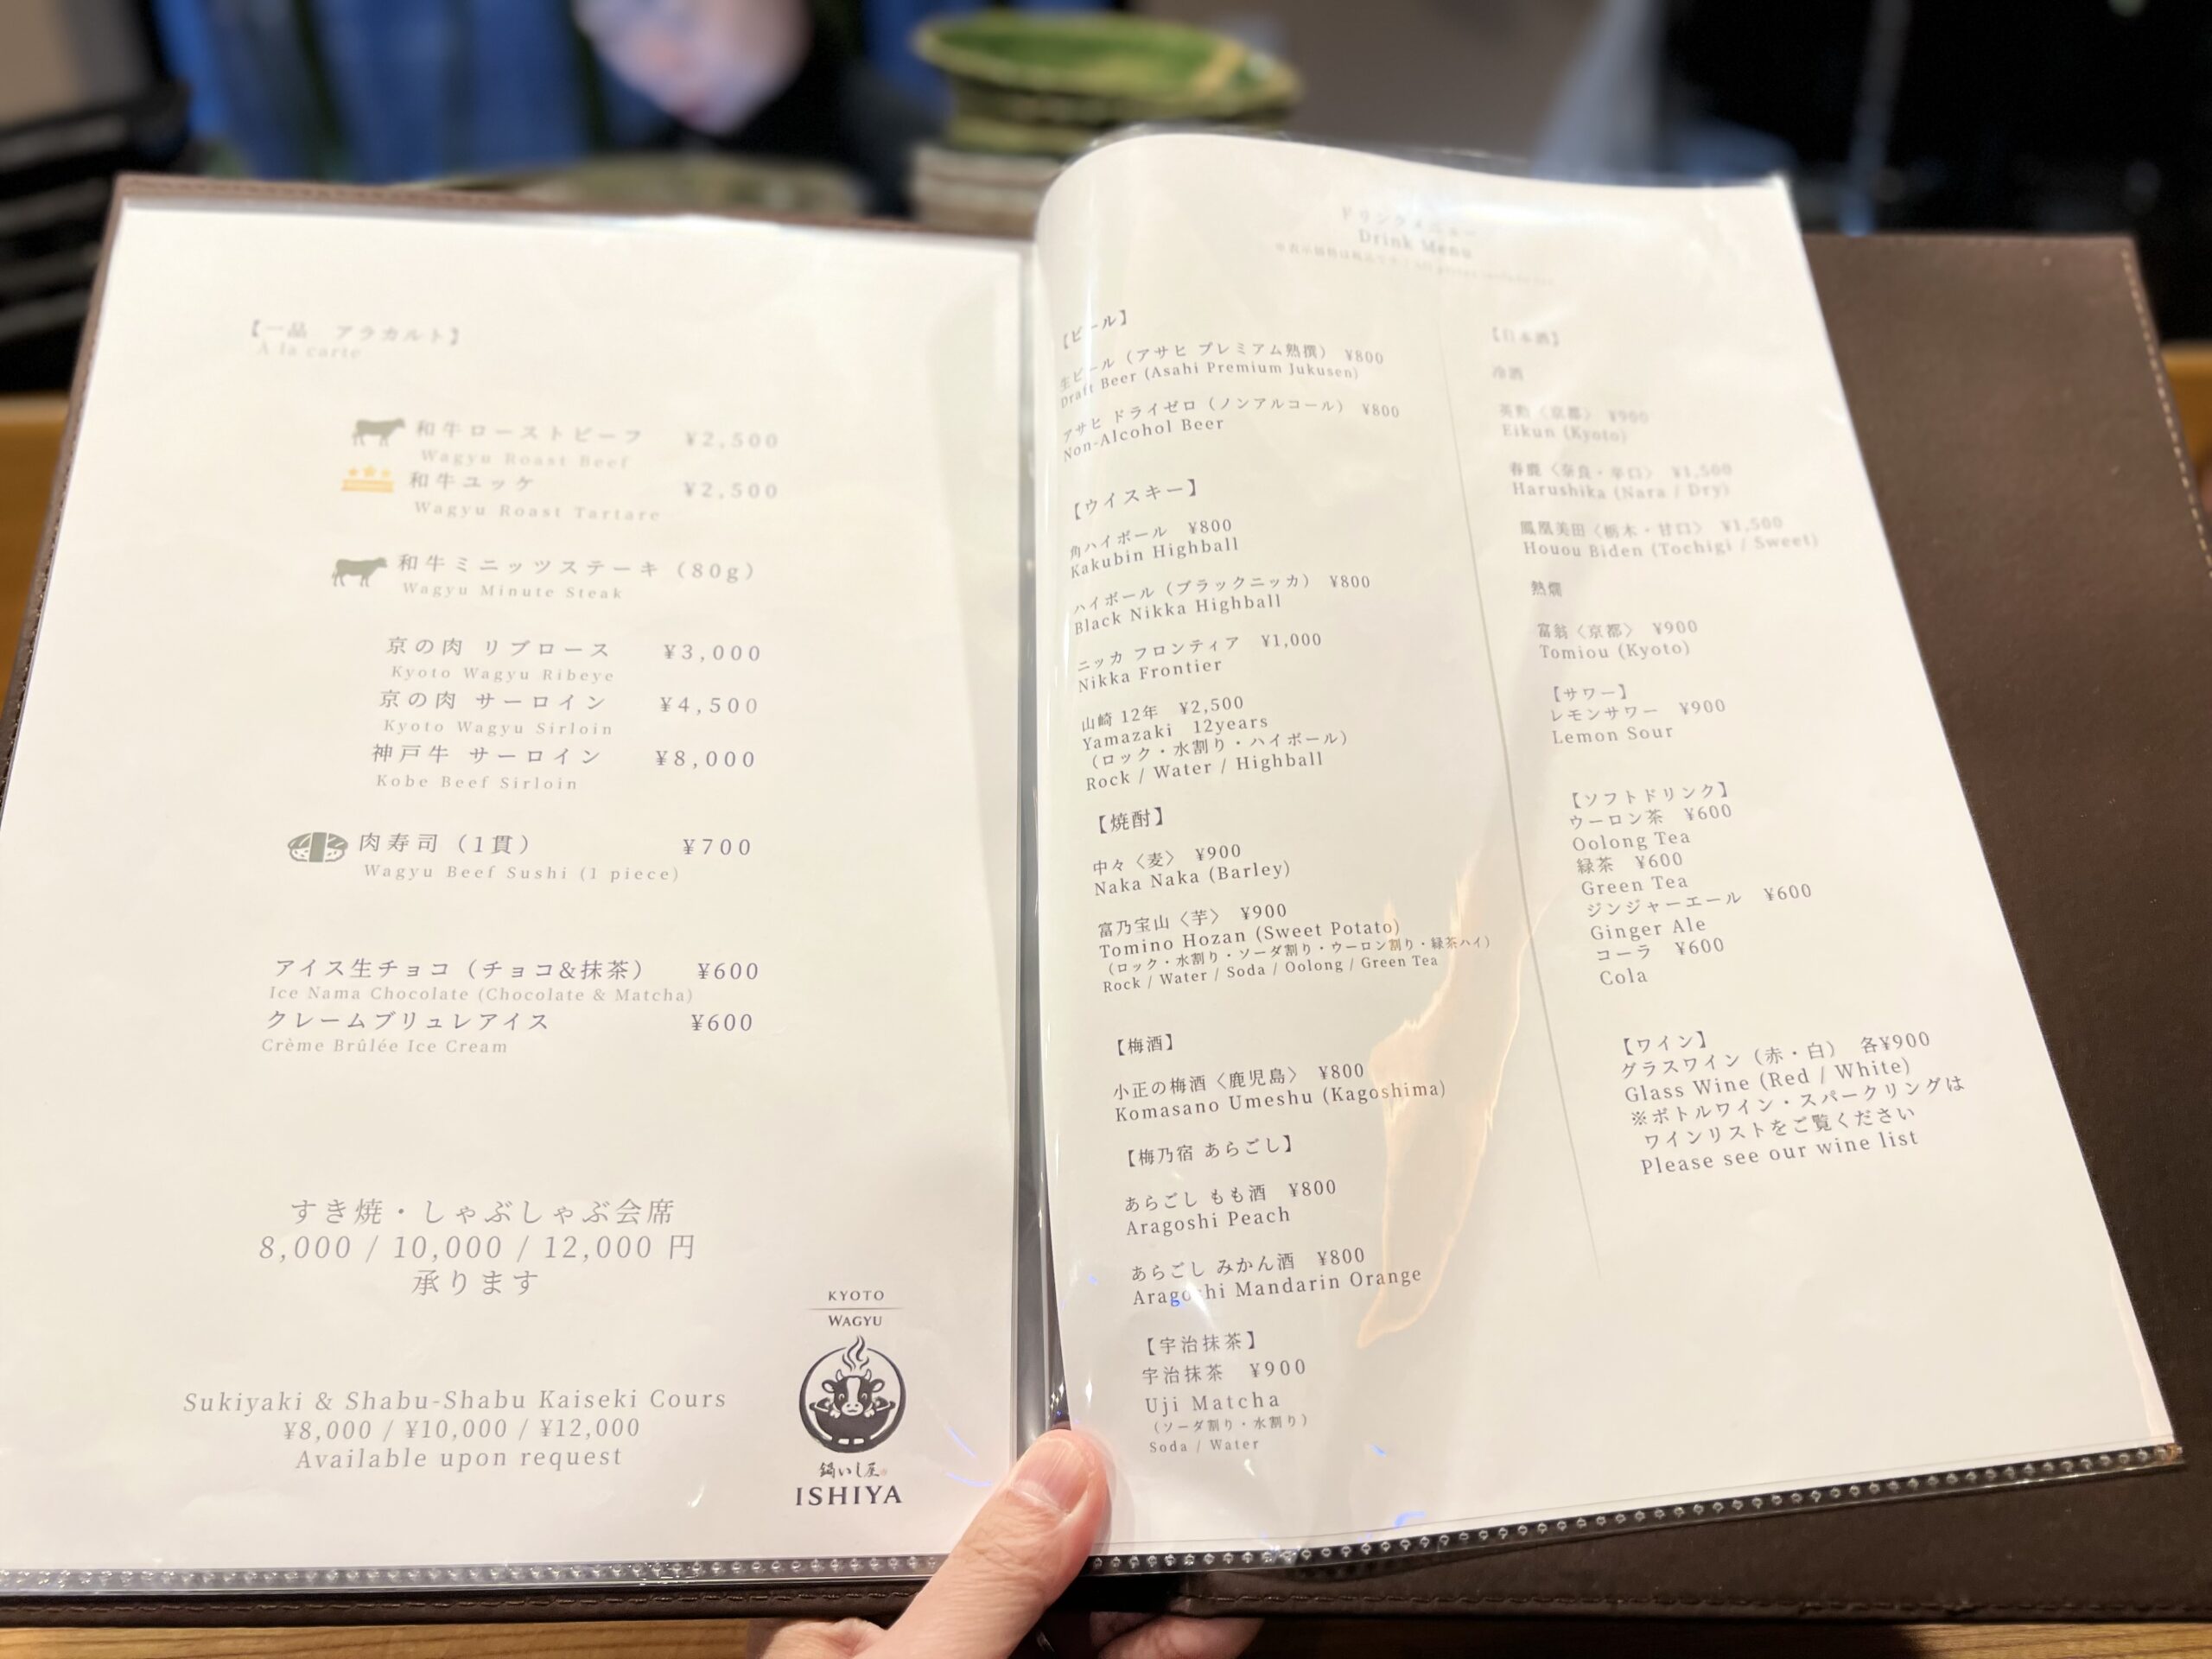 【一品 アラカルト】
A la carte
和牛ローストビーフ ¥2,500
Wagyu Roast Beef
和牛ユッケ ¥2,500
Wagyu Roast Tartare
和牛ミニッツステーキ（80g）
Wagyu Minute Steak
京の肉 リブロース ¥3,000
Kyoto Wagyu Ribeye
京の肉 サーロイン ¥4,500
Kyoto Wagyu Sirloin
神戸牛 サーロイン ¥8,000
Kobe Beef Sirloin
肉寿司（1貫） ¥700
Wagyu Beef Sushi (1 piece)
アイス生チョコ（チョコ&抹茶） ¥600
Ice Nama Chocolate (Chocolate & Matcha)
クレームブリュレアイス ¥600
Crème Brûlée Ice Cream
すき焼・しゃぶしゃぶ会席
8,000 / 10,000 / 12,000 円
承ります
Sukiyaki & Shabu-Shabu Kaiseki Cours
¥8,000 / ¥10,000 / ¥12,000
Available upon request
KYOTO
WAGYU
鍋いし屋
ISHIYA
ドリンクメニュー
Drink Menu
【ビール】
生ビール（アサヒ プレミアム熟撰） ¥800
Draft Beer (Asahi Premium Jukusen)
アサヒ ドライゼロ（ノンアルコール） ¥800
Non-Alcohol Beer
【ウイスキー】
角ハイボール ¥800
Kakubin Highball
ハイボール（ブラックニッカ） ¥800
Black Nikka Highball
ニッカ フロンティア ¥1,000
Nikka Frontier
山崎 12年 ¥2,500
Yamazaki 12years
（ロック・水割り・ハイボール）
Rock / Water / Highball
【焼酎】
中々〈麦〉 ¥900
Naka Naka (Barley)
富乃宝山〈芋〉 ¥900
Tomino Hozan (Sweet Potato)
（ロック・水割り・ソーダ割り・ウーロン割り・緑茶ハイ）
Rock / Water / Soda / Oolong / Green Tea
【梅酒】
小正の梅酒〈鹿児島〉 ¥800
Komasano Umeshu (Kagoshima)
【梅乃宿 あらごし】
あらごし もも酒 ¥800
Aragoshi Peach
あらごし みかん酒 ¥800
Aragoshi Mandarin Orange
【宇治抹茶】
宇治抹茶 ¥900
Uji Matcha
（ソーダ割り・水割り）
Soda / Water
【日本酒】
冷酒
英勲〈京都〉 ¥900
Eikun (Kyoto)
春鹿〈奈良・辛口〉 ¥1,500
Harushika (Nara / Dry)
鳳凰美田〈栃木・甘口〉 ¥1,500
Houou Biden (Tochigi / Sweet)
熱燗
富翁〈京都〉 ¥900
Tomiou (Kyoto)
【サワー】
レモンサワー ¥900
Lemon Sour
【ソフトドリンク】
ウーロン茶 ¥600
Oolong Tea
緑茶 ¥600
Green Tea
ジンジャーエール ¥600
Ginger Ale
コーラ ¥600
Cola
【ワイン】
グラスワイン（赤・白） 各¥900
Glass Wine (Red / White)
※ボトルワイン・スパークリングは
ワインリストをご覧ください
Please see our wine list